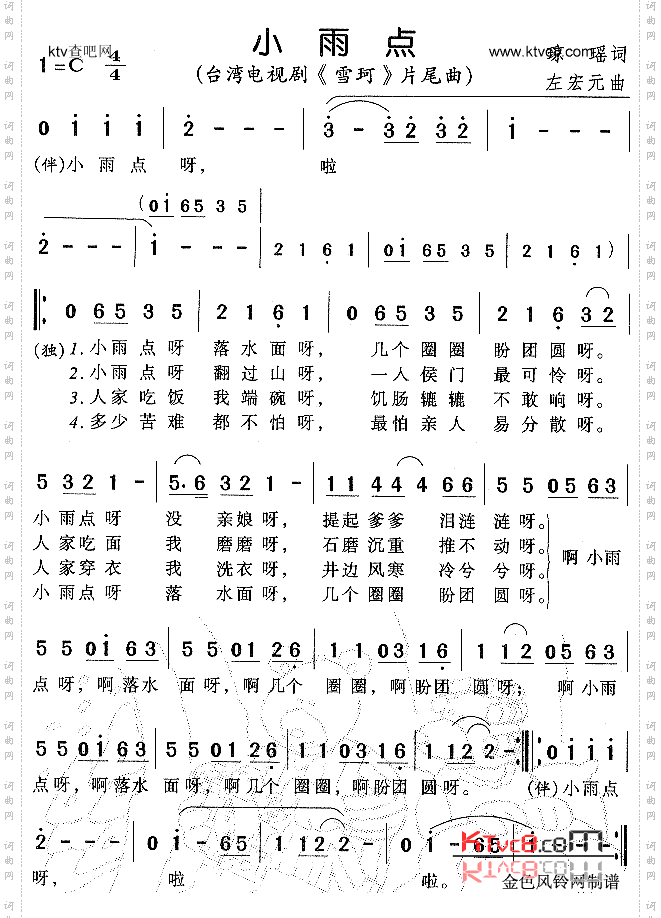 ktv查吧网
小雨点
www.ktvc8.com
瑶词
1=C 4/4
(台湾电视剧《雪珂》片尾曲)
左宏元曲
0 i i i | 2 - - - | 3 - 32 32 | i - - - |
(伴)小 雨 点 呀， 啦
(0i 65 3 5
2 - - - | i - - - | 2 1 6 1 | 0i 65 3 5 | 2 1 6 1) |
0 65 3 5 | 2 1 6 1 | 0 65 3 5 | 2 1 6 32 |
(独) 1.小雨 点 呀 落 水 面 呀， 几个 圈 圈 盼 团 圆 呀。
2.小雨 点 呀 翻 过 山 呀， 一入 侯 门 最 可 怜 呀。
3.人家 吃 饭 我 端 碗 呀， 饥肠 辘 辘 不 敢 响 呀。
4.多少 苦 难 都 不 怕 呀， 最怕 亲 人 易 分 散 呀。
5 32 1 - | 5.6 32 1 - | 11 44 4 66 | 55 05 63 |
小 雨点 呀 没 亲娘 呀， 提起 爹爹 泪涟 涟 呀。
人 家吃 面 我 磨磨 呀， 石磨 沉重 推不 动 呀。
啊 小雨
人 家穿 衣 我 洗衣 呀， 井边 风寒 冷兮 兮 呀。
小 雨点 呀 落 水面 呀， 几个 圈圈 盼团 圆 呀。
5 5 0i 63 | 5 5 01 26 | 1 1 03 16 | 1 12 05 63 |
点 呀，啊 落水 面 呀，啊 几个 圈 圈，啊 盼团 圆 呀； 啊 小雨
55 0i 63 | 55 01 26 | 11 03 16 | 1 12 2 - :| 0 i i i |
点 呀，啊 落水 面 呀，啊 几个 圈 圈，啊 盼团 圆 呀。 (伴)小 雨 点
2 - - - | 0 i - 65 | i - - - | 0 i - 65 | i - - - |
呀， 啦 啦。
KTvc8.com
金色风铃网制谱